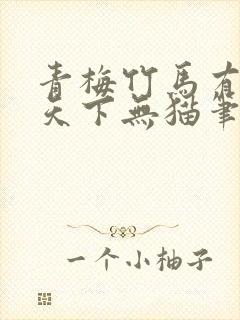 青梅竹馬有
天下無猫筆
一个小柚子